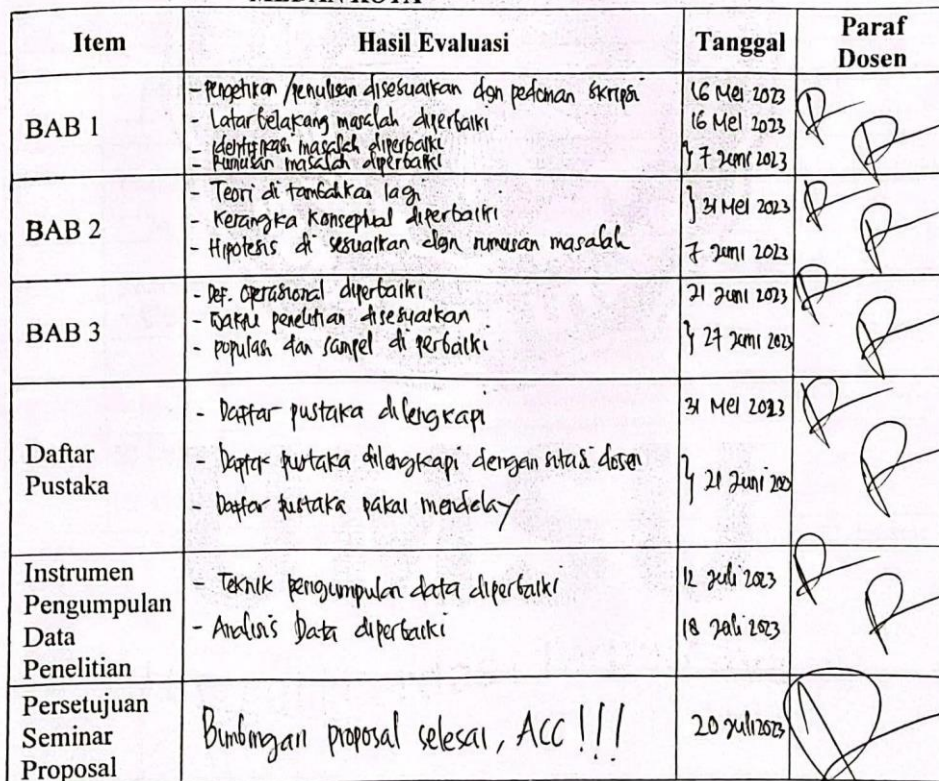 MEDAN KOTA
Item Hasil Evaluasi Tanggal Paraf Dosen
BAB 1
- Pengetikan /penulisan disesuaikan dgn pedoman skripsi 16 Mei 2023
- Latar belakang masalah diperbaiki 16 Mei 2023
- Identifikasi masalah diperbaiki
- Rumusan masalah diperbaiki } 7 Juni 2023
BAB 2
- Teori di tambahkan lagi
- Kerangka Konseptual diperbaiki } 31 Mei 2023
- Hipotesis di sesuaikan dgn rumusan masalah 7 Juni 2023
BAB 3
- Def. Operasional diperbaiki 21 Juni 2023
- Waktu penelitian disesuaikan
- populasi dan sampel di perbaiki } 27 Juni 2023
Daftar Pustaka
- Daftar pustaka dilengkapi 31 Mei 2023
- Daftar pustaka dilengkapi dengan sitasi dosen
- Daftar pustaka pakai mendeley } 21 Juni
Instrumen Pengumpulan Data Penelitian
- Teknik pengumpulan data diperbaiki 12 Juli 2023
- Analisis Data diperbaiki 18 Juli 2023
Persetujuan Seminar Proposal
Bimbingan proposal selesai, ACC !!! 20 Juli 2023